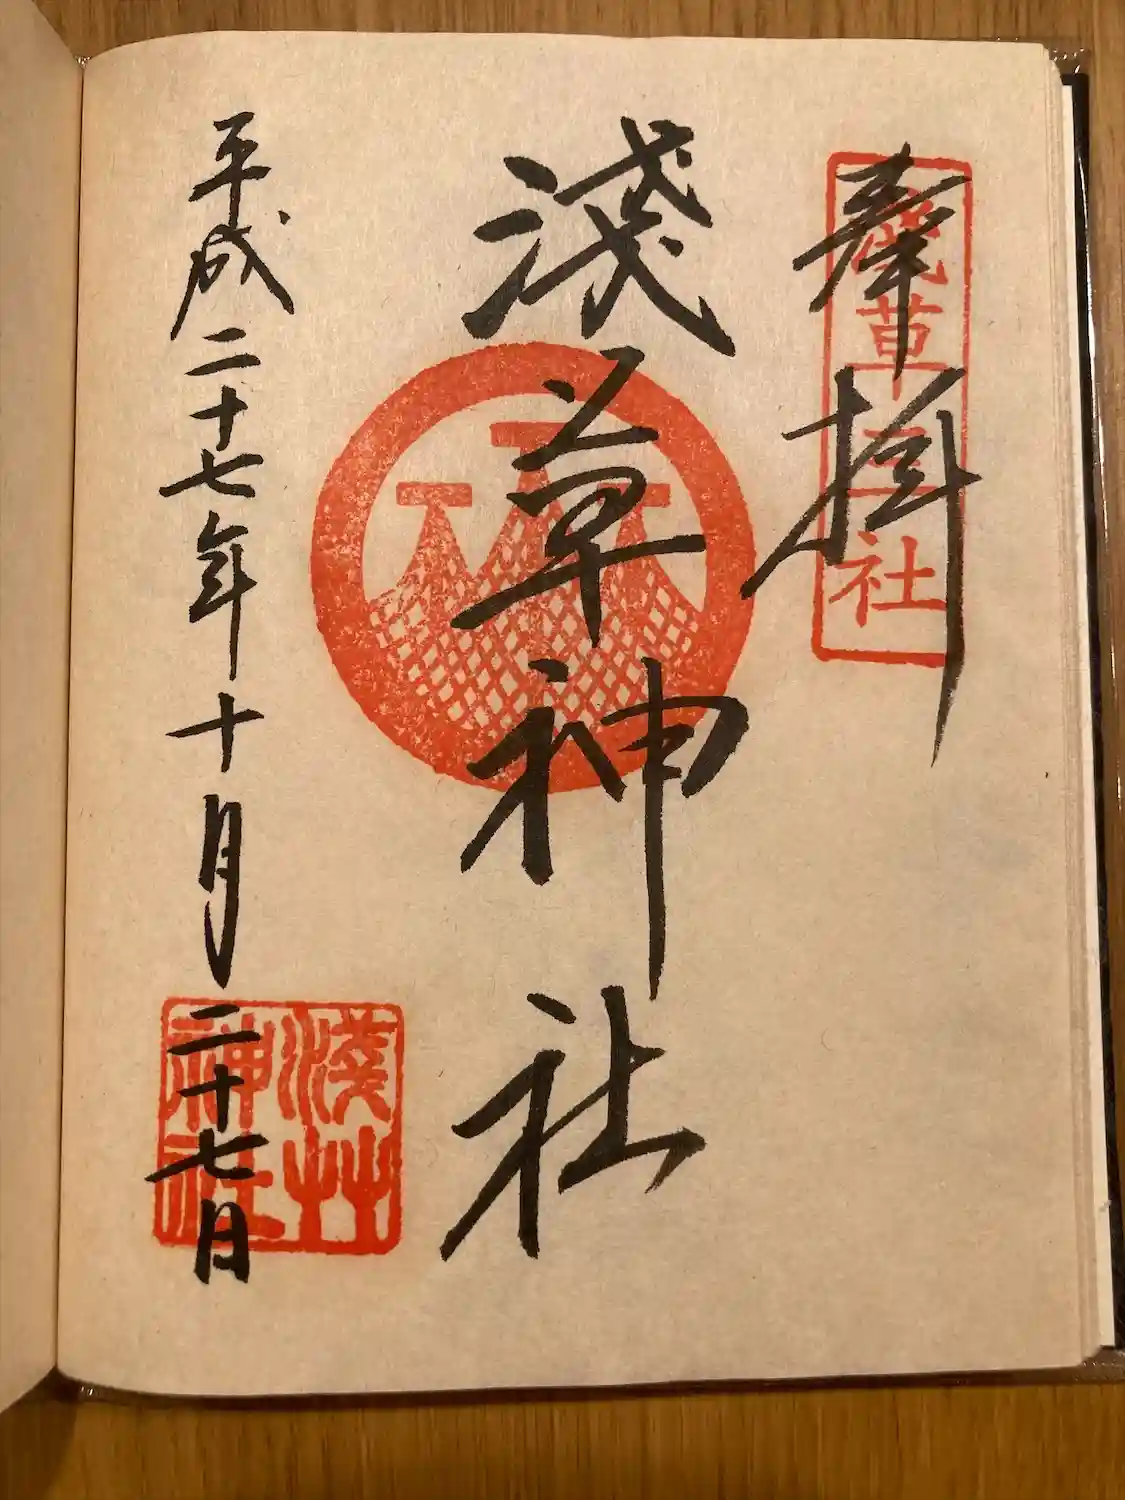 奉拝
淺草三社
淺草神社
平成二十七年十月二十七日
淺艸
神社